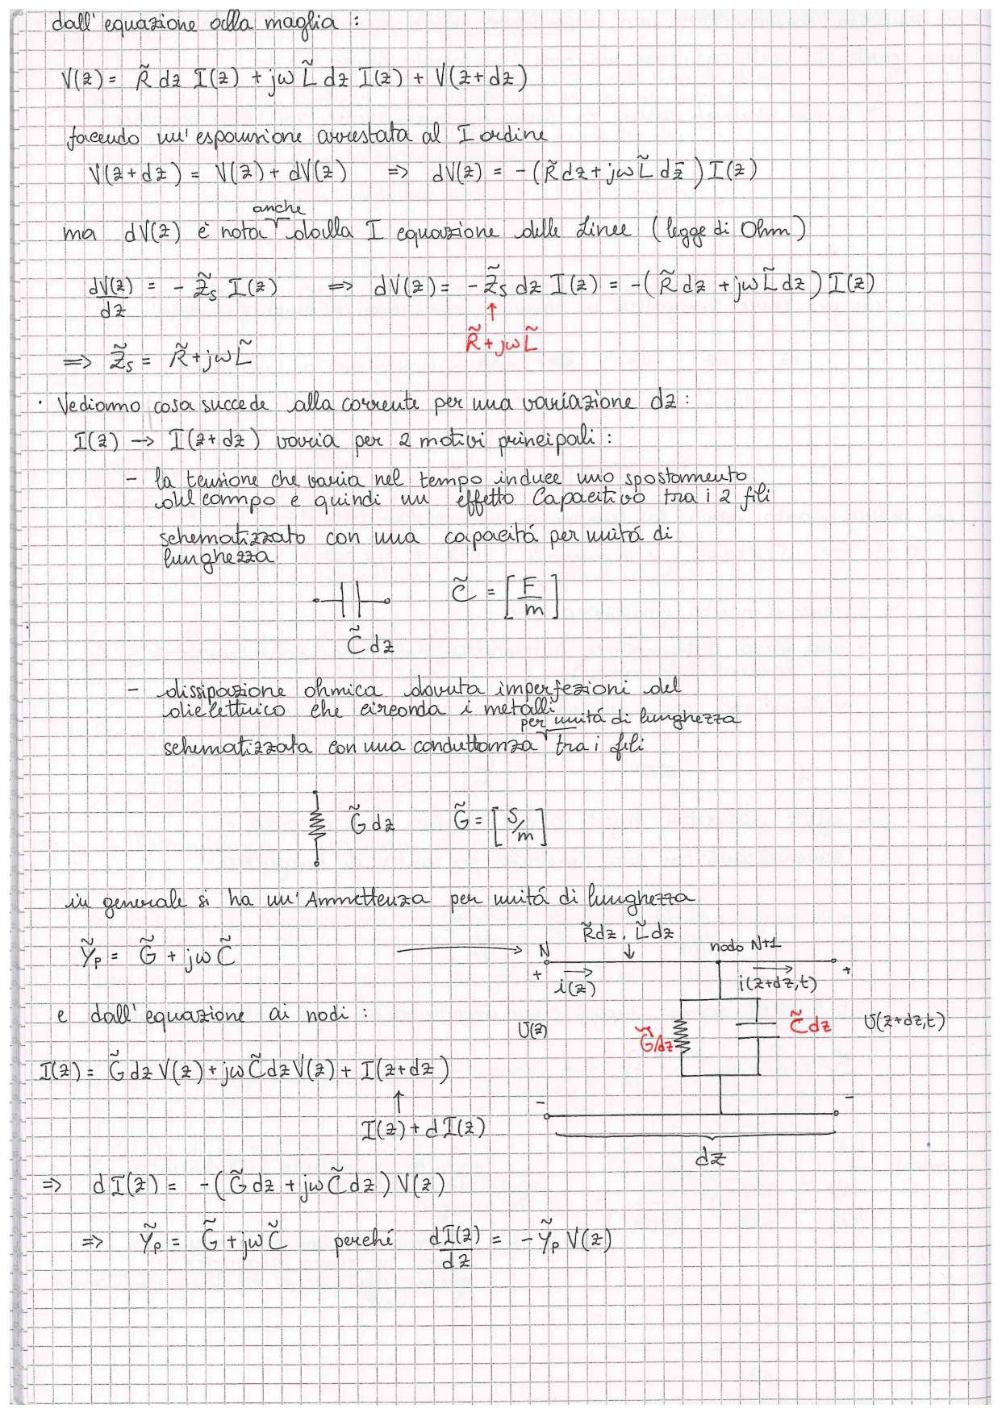 dall'equazione alla maglia :
V(z) = R̃ dz I(z) + jω L̃ dz I(z) + V(z+dz)
facendo un'espansione arrestata al I ordine
V(z+dz) = V(z) + dV(z) ⇒ dV(z) = -(R̃ dz + jω L̃ dz) I(z)
anche
ma dV(z) è nota dalla I equazione delle Linee (legge di Ohm)
dV(z)/dz = - Z̃s I(z) ⇒ dV(z) = - Z̃s dz I(z) = -(R̃ dz + jω L̃ dz) I(z)
↑
R̃ + jω L̃
⇒ Z̃s = R̃ + jω L̃
· Vediamo cosa succede alla corrente per una variazione dz :
I(z) → I(z+dz) varia per 2 motivi principali :
- la tensione che varia nel tempo induce uno spostamento
del campo e quindi un effetto Capacitivo tra i 2 fili
schematizzato con una capacitá per unitá di
lunghezza
C̃ = [F/m]
C̃ dz
- dissipazione ohmica dovuta imperfezioni del
dielettrico che circonda i metalli
per unitá di lunghezza
schematizzata con una conduttanza tra i fili
G̃ dz G̃ = [S/m]
in generale si ha un'Ammettenza per unitá di lunghezza
Ỹp = G̃ + jω C̃
R̃dz, L̃dz
N
nodo N+1
+
i(z)
i(z+dz,t)
+
e dall'equazione ai nodi :
U(z)
G̃dz
C̃dz
U(z+dz,t)
I(z) = G̃ dz V(z) + jω C̃ dz V(z) + I(z+dz)
↑
I(z) + dI(z)
-
-
dz
⇒ dI(z) = -(G̃ dz + jω C̃ dz) V(z)
⇒ Ỹp = G̃ + jω C̃ perché dI(z)/dz = - Ỹp V(z)